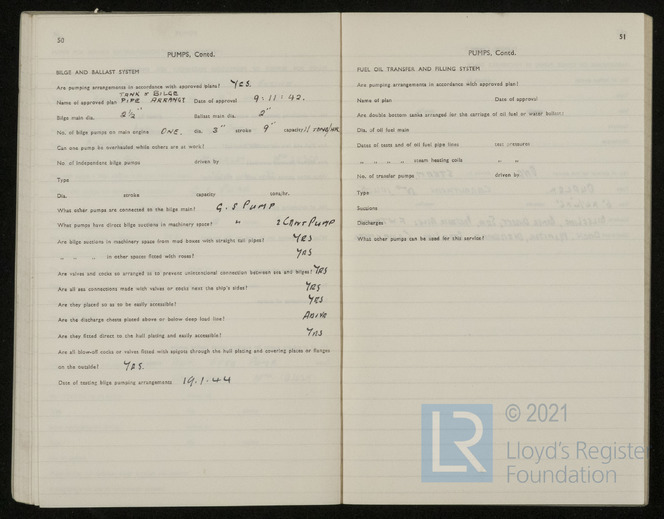 50
PUMPS, Contd.
BILGE AND BALLAST SYSTEM
Are pumping arrangements in accordance with approved plans? YES.
TANK & BILGE
Name of approved plan PIPE ARRANGT Date of approval 9.11.42.
Bilge main dia. 2½" Ballast main dia. 2"
No. of bilge pumps on main engine ONE. dia. 3" stroke 9" capacity 11 TONS/HR.
Can one pump be overhauled while others are at work?
No. of independent bilge pumps driven by
Type
Dia. stroke capacity tons/hr.
What other pumps are connected to the bilge main? G.S PUMP
What pumps have direct bilge suctions in machinery space? " & CENT PUMP
Are bilge suctions in machinery space from mud boxes with straight tail pipes? YES
" " " in other spaces fitted with roses? YES
Are valves and cocks so arranged as to prevent unintentional connection between sea and bilges? YES
Are all sea connections made with valves or cocks next the ship's sides? YES
Are they placed so as to be easily accessible? YES
Are the discharge chests placed above or below deep load line? ABOVE
Are they fitted direct to the hull plating and easily accessible? YES
Are all blow-off cocks or valves fitted with spigots through the hull plating and covering plates or flanges
on the outside? YES.
Date of testing bilge pumping arrangements 19.1.44
51
PUMPS, Contd.
FUEL OIL TRANSFER AND FILLING SYSTEM
Are pumping arrangements in accordance with approved plan?
Name of plan Date of approval
Are double bottom tanks arranged for the carriage of oil fuel or water ballast?
Dia. of oil fuel main
Dates of tests and of oil fuel pipe lines test pressures
" " " " steam heating coils " "
No. of transfer pumps driven by
Type
Suctions
Discharges
What other pumps can be used for this service?
LR
© 2021
Lloyd's Register
Foundation